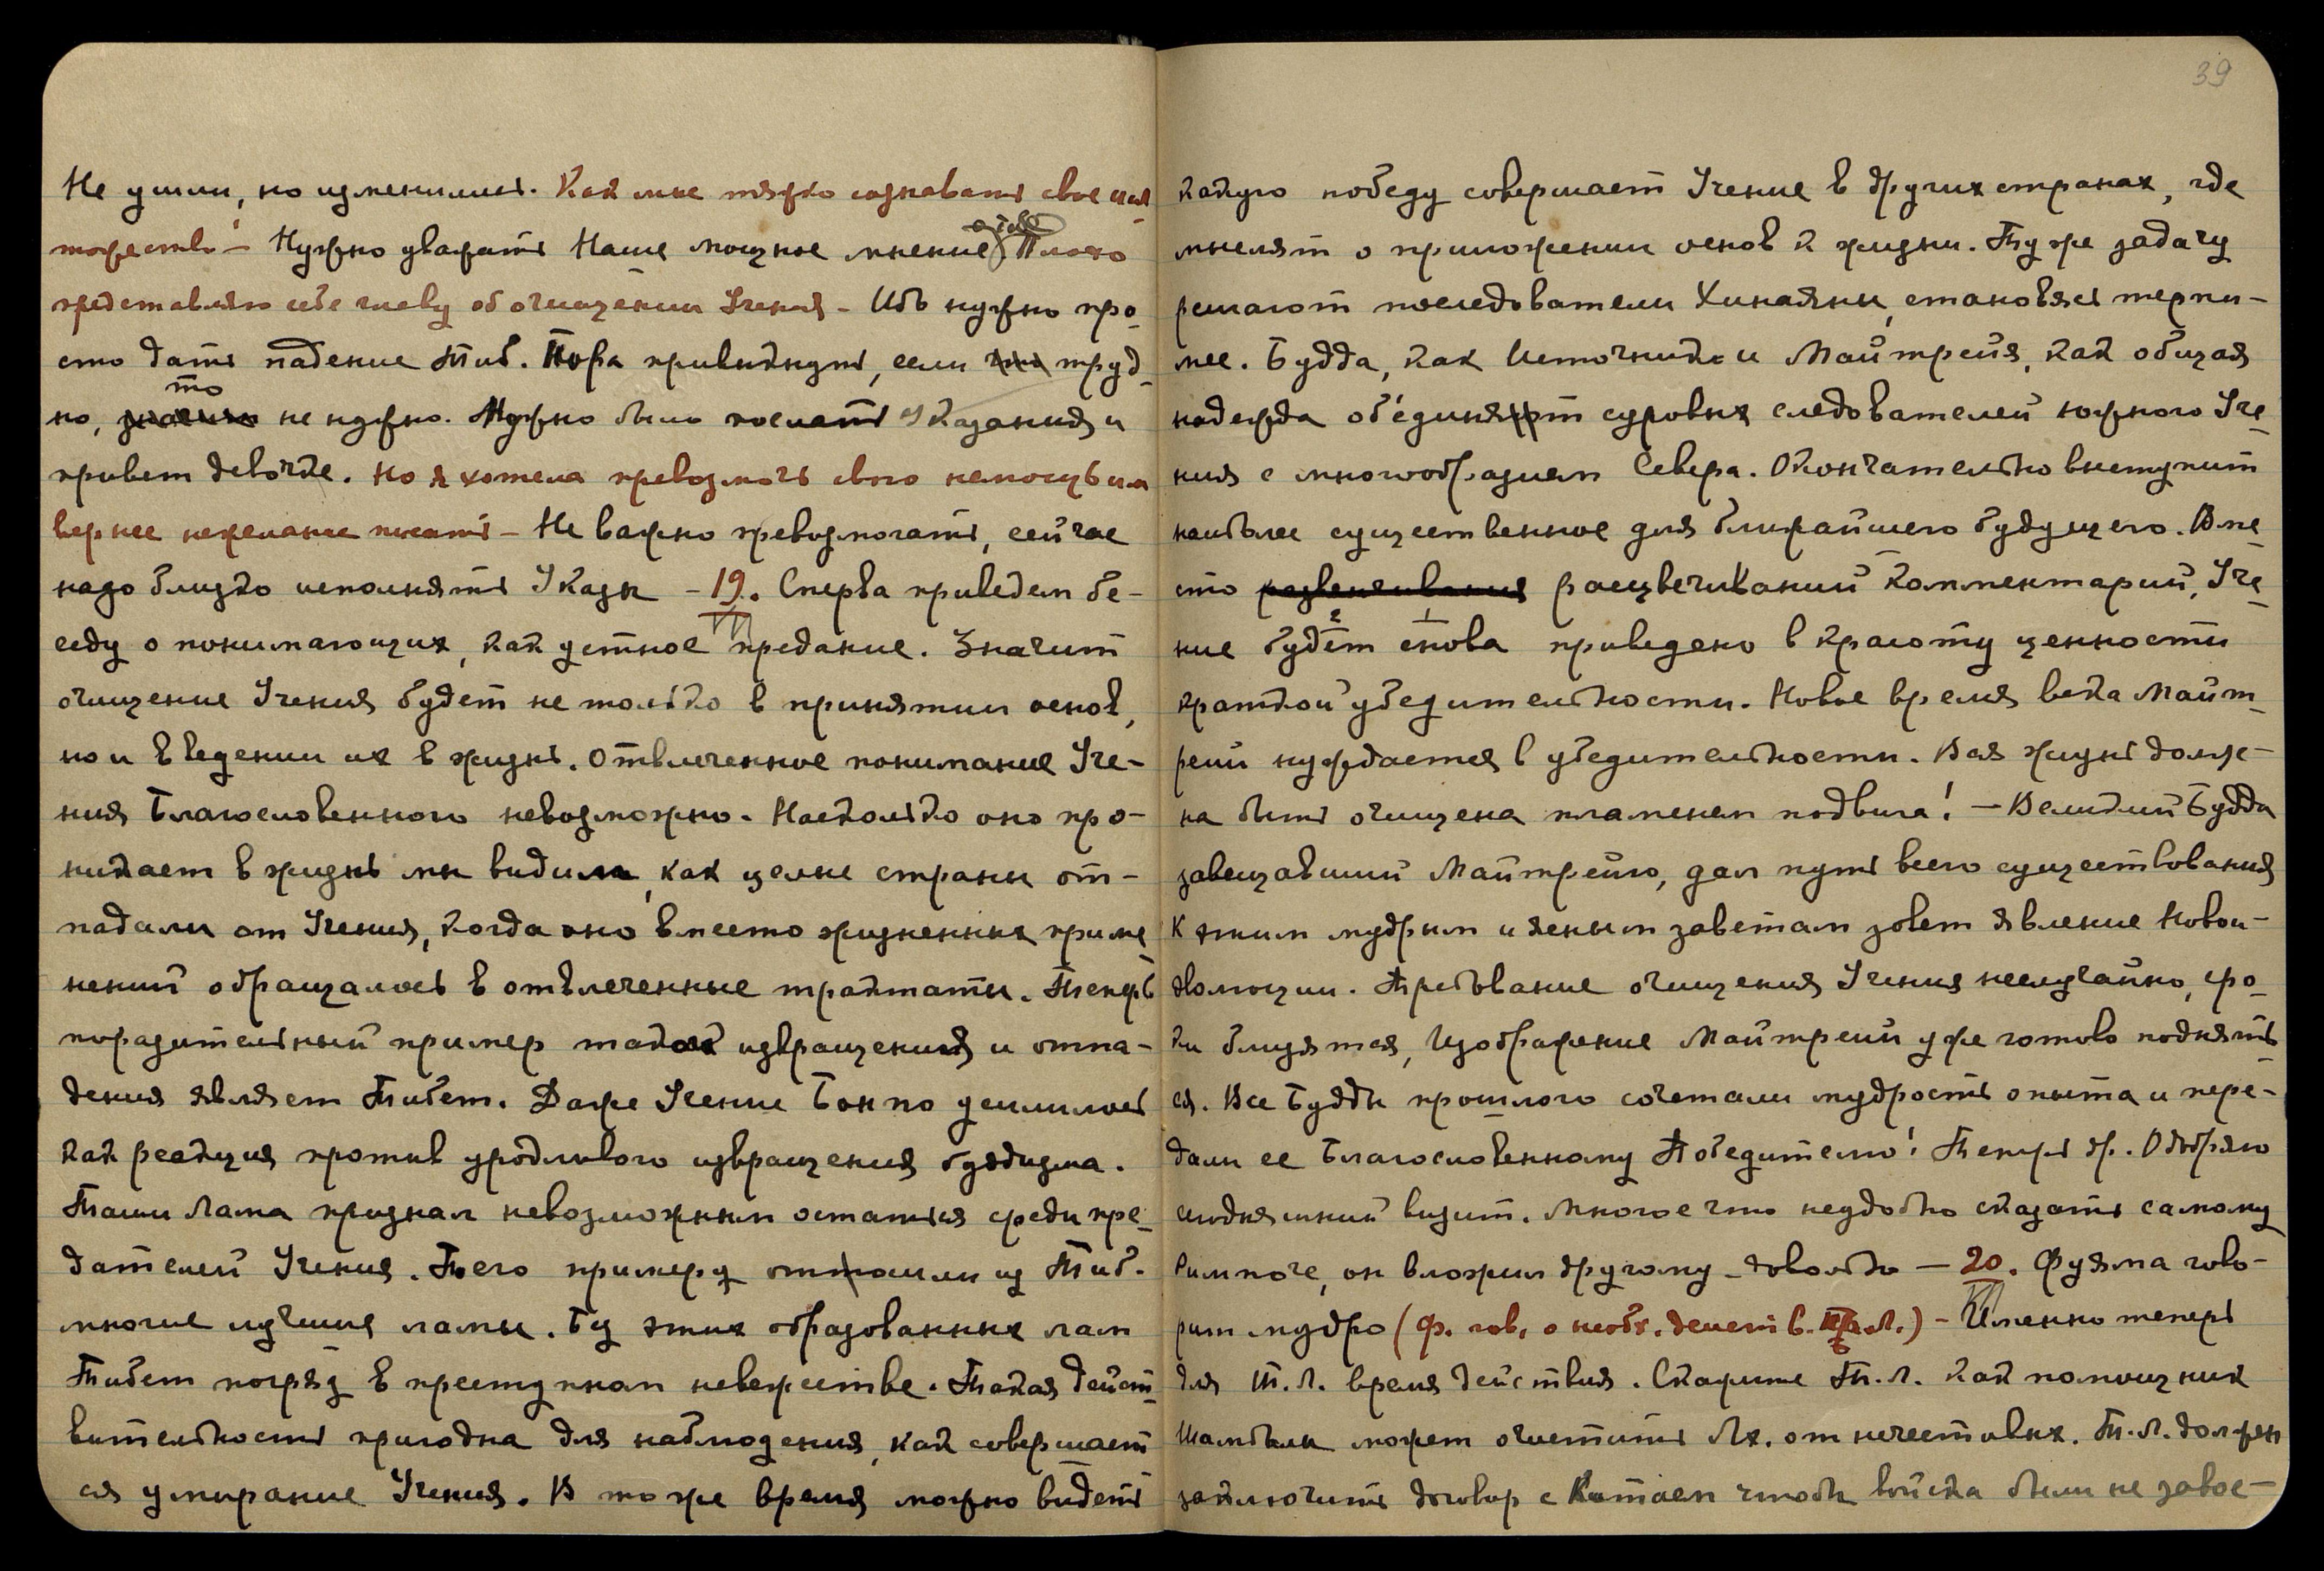 39
Не ушли, но изменились. Как мне тяжко сознавать свое нич-
тожество! – Нужно уважать Наше мощное мнение о тебе Плохо
представляю себе главу об очищении Учения – Ибо нужно про-
сто дать падение Тиб. Пора привыкнуть, если что труд-
но, то не нужно. Нужно было послать Указания и
привет девочке. Но я хотела превозмочь свою немощь или
вернее нежелание писать – Не важно превозмогать, сейчас
надо близко исполнять Указы – 19. Сперва приведем бе-
III
седу о понимающих, как устное предание. Значит
очищение Учения будет не только в принятии основ,
но и введении их в жизнь. Отвлеченное понимание Уче-
ния Благословенного невозможно. Насколько оно про-
никает в жизнь мы видим, как целые страны от-
падали от Учения, когда оно вместо жизненных приме-
нений обращалось в отвлеченные трактаты. Теперь
поразительный пример такой извращения и отпа-
дения являет Тибет. Даже Учение Бон по усилилось
как реакция против уродливого извращения буддизма.
Таши Лама признал невозможным остаться среди пре-
дателей Учения. По его примеру отошли из Тиб.
многие лучшие ламы. Без этих образованных лам
Тибет погряз в преступном невежестве. Такая дейст-
вительность пригодна для наблюдения, как совершает-
ся умирание Учения. В то же время можно видеть
какую победу совершает Учение в других странах, где
мыслят о приложении основ к жизни. Ту же задачу
решают последователи Хинаяны, становясь терпи-
мее. Будда, как Источник и Майтрейя, как общая
надежда объединят суровых следователей южного Уче-
ния с многообразием Севера. Окончательно выступит
наиболее существенное для ближайшего будущего. Вме-
сто развенчивания расцвечиваний комментарий, Уче-
ние будет снова приведено в красоту ценности
краткой убедительности. Новое время века Майт-
рейи нуждается в убедительности. Вся жизнь долж-
на быть очищена пламенем подвига! – Великий Будда
завещавший Майтрейю, дал путь всего существования
К этим мудрым и ясным заветам зовет явление Новой-
эволюции. Требование очищения Учения неслучайно, сро-
ки близятся, Изображение Майтрейи уже готово поднять-
ся. Все Будды прошлого сочетали мудрость опыта и пере-
дали ее Благословенному Победителю! Теперь др. Одобряю
сегодняшний визит. Многое что неудобно сказать самому
Римпоче, он вложил другому – довольно – 20. Фуяма гово-
III
рит мудро (Ф. гов. о необх. действ. Л.) – Именно теперь
для Т.Л. время действия. Скажите Т.Л. как помощник
Шамбалы может очистить Лх. от нечестивых. Т.Л. должен
заключить договор с Китаем чтобы войска были не завое-